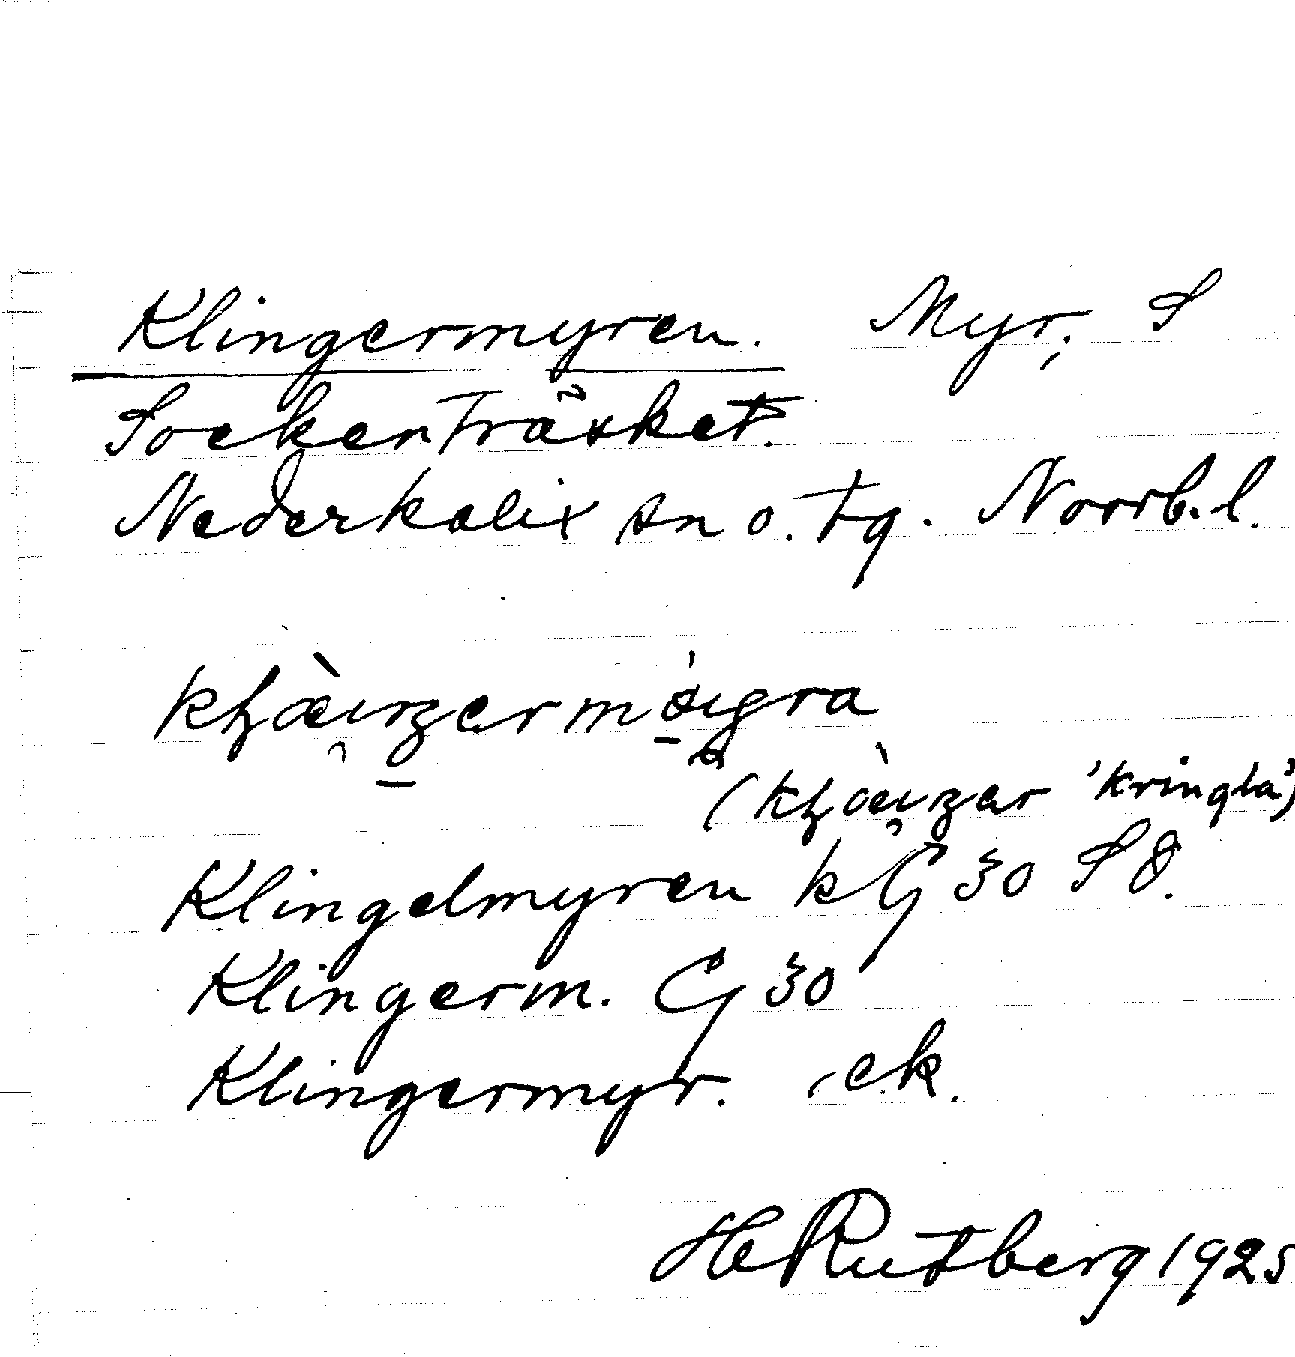 Klingermyren. Myr, S
Sockenträsket.
Nederkalix sn o. tg. Norrb. l.
'kringla')
Klingelmyren k G 30 S Ö.
Klingerm. G 30
Klingermyr. ek.
H Rutberg 1925